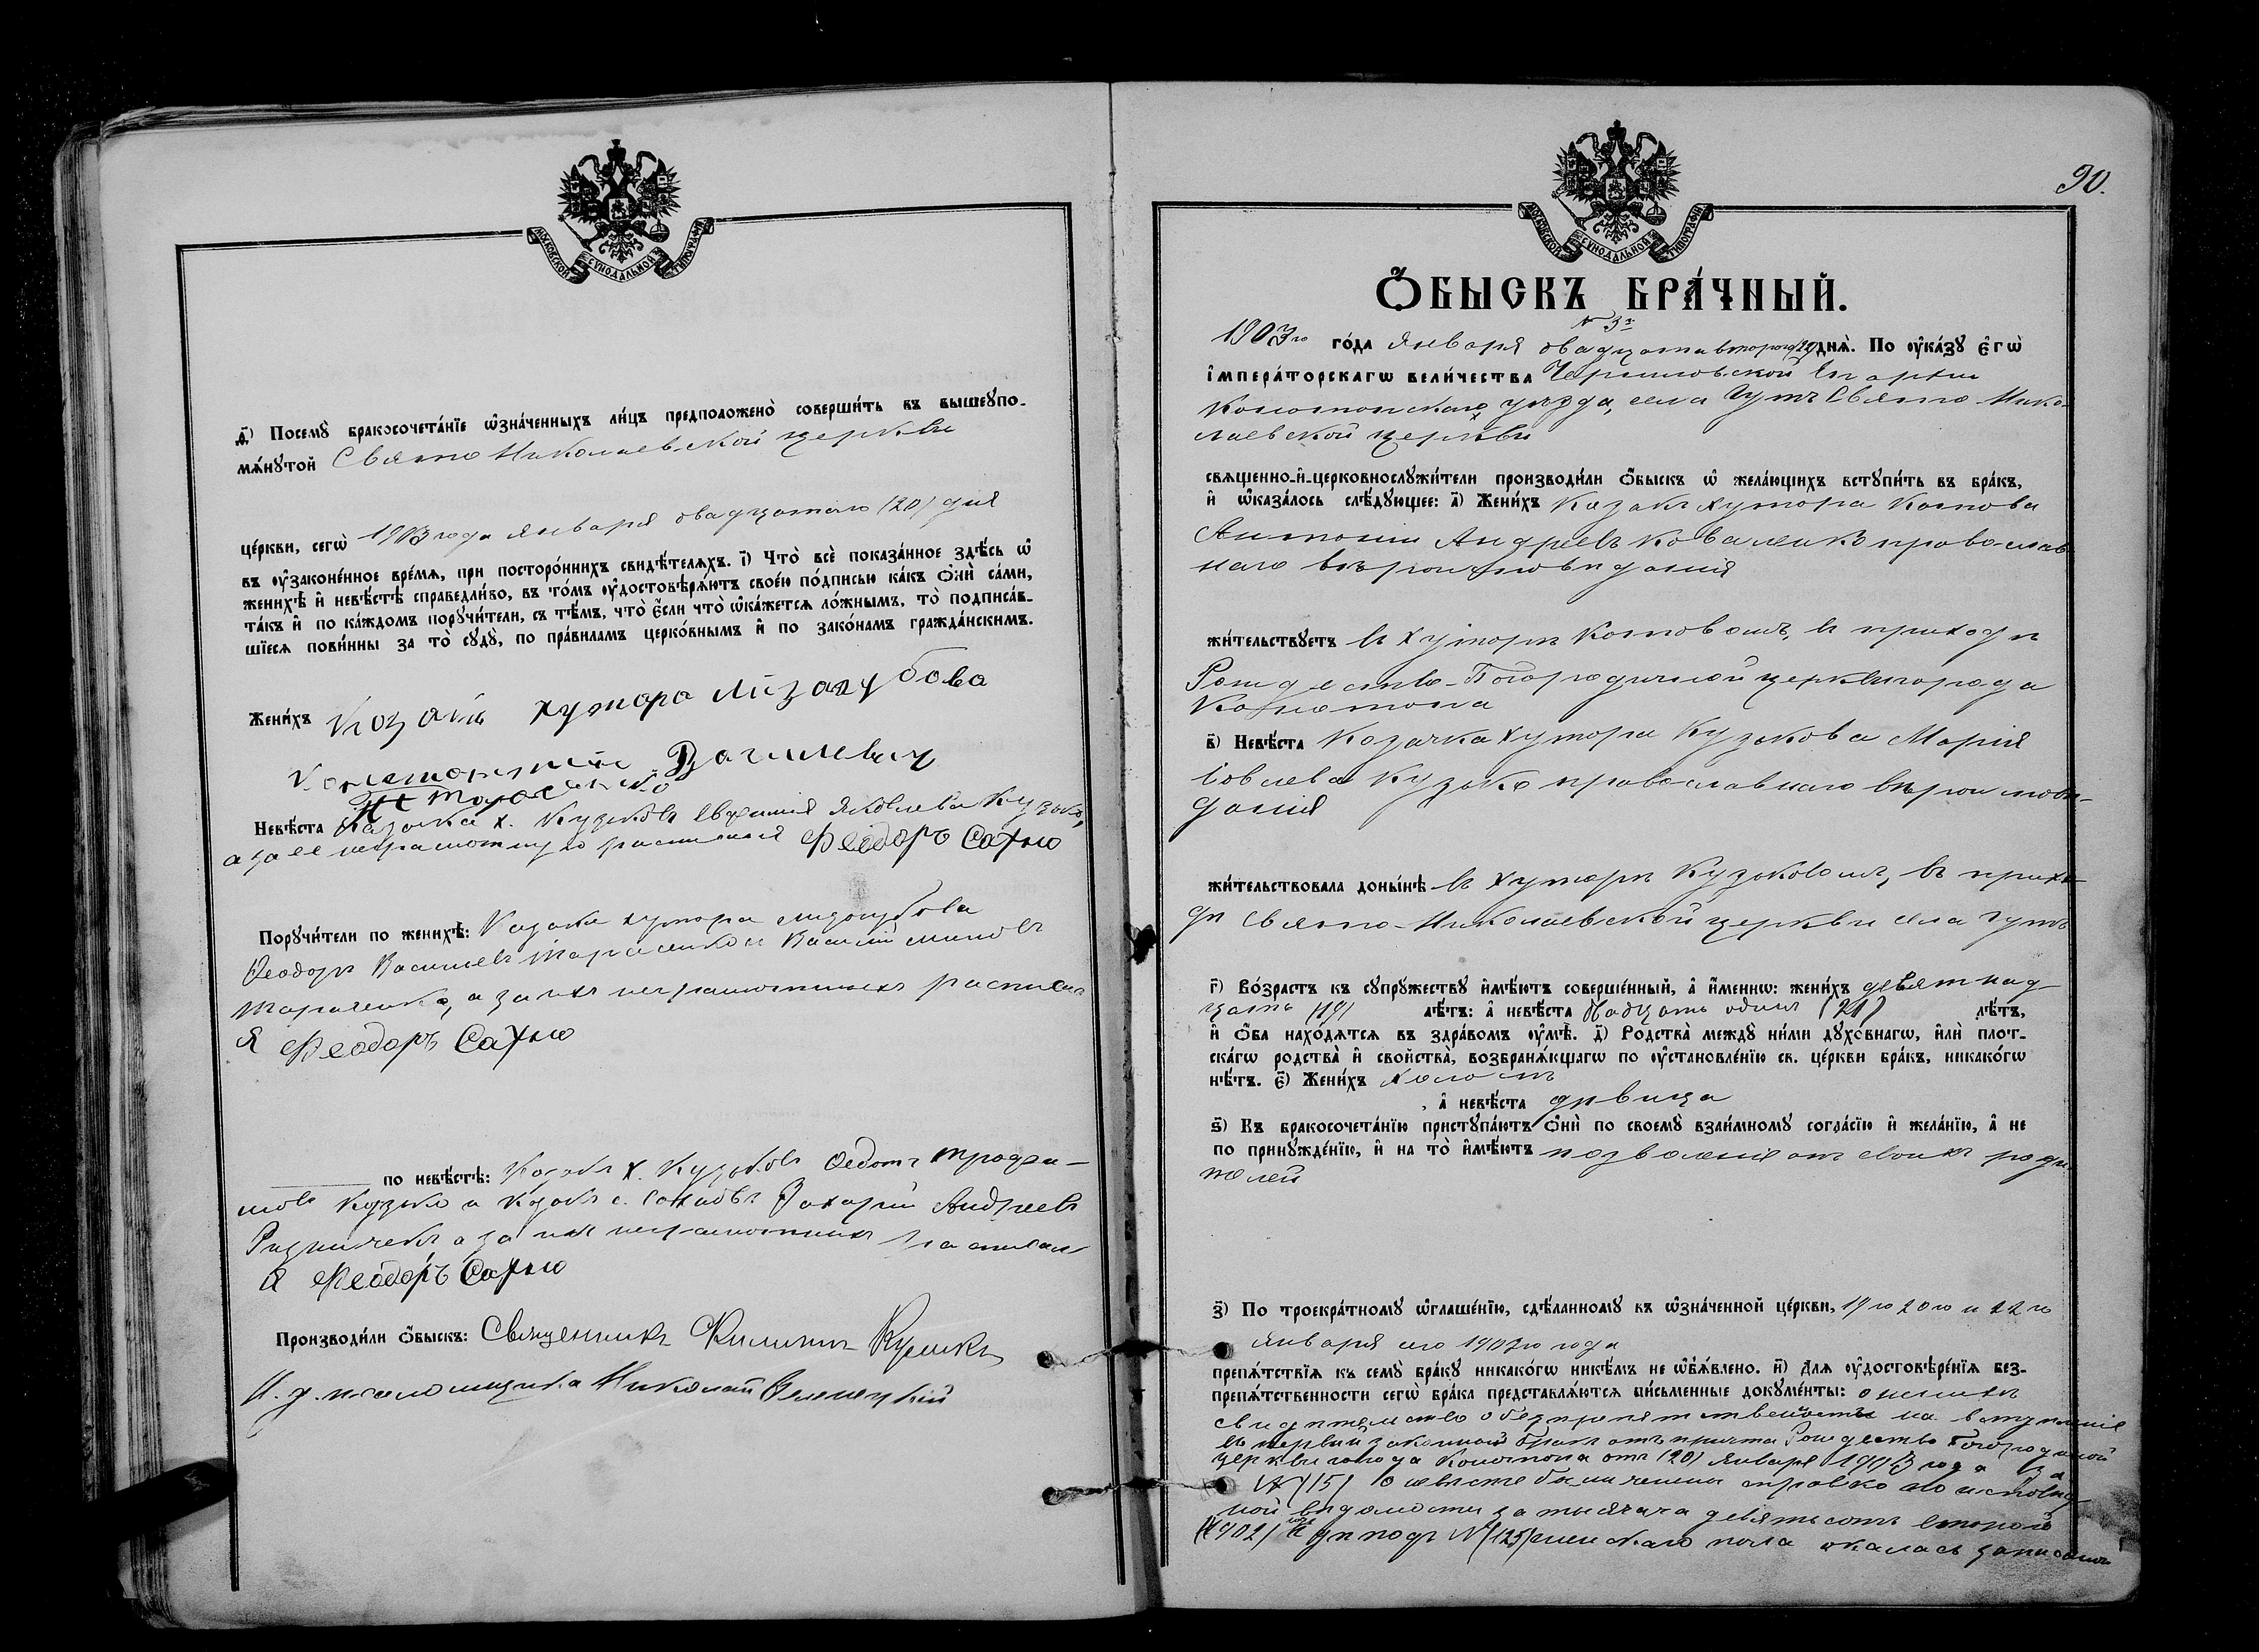 МОСКОВСКОЙ СѴНОДАЛЬНОЙ ТИПОГРАФІИ
д҃) Посемꙋ̀ бракосочета́нїе ѡ҆зна́ченныхъ ли́цъ предположено̀ соверши́ть въ вышеꙋпо-
мѧ́нꙋтой Свято Николаевской церкви
це́ркви, сегѡ̀ 1903 года января двадцатаго (20) дня
въ ᲂу҆зако́ненное вре́мѧ, при посторо́ннихъ свидѣ́телѧхъ. і҃) Что̀ всѐ показа́нное здѣ́сь ѡ҆
женихѣ̀ и҆ невѣ́стѣ справедли́во, въ то́мъ ᲂу҆достовѣрѧ́ютъ свое́ю по́дписью ка́къ ѻ҆нѝ са́ми,
та́къ и҆ по ка́ждомъ порꙋчи́тели, съ тѣ́мъ, что̀ є҆́сли что̀ ѡ҆ка́жетсѧ ло́жнымъ, то̀ подписа́в-
шїесѧ пови́нны за то̀ сꙋдꙋ̀, по пра́виламъ церко́внымъ и҆ по зако́намъ гражда́нскимъ.
Жени́хъ Козакъ хутора Лизагубова
Василевич
Тарасенко
Невѣ́ста Казачка х. Кузьковъ Евфимія Яковлева Кузько,
а за ее неграмотную росписался Феодоръ Сахно
Порꙋчи́тели по женихѣ̀: Козаки хутора Лизогубова
Феодоръ Васильевъ Тарасенко и Василій
Тарасенко, а за ихъ неграмотныхъ росписался
я Феодоръ Сахно
по невѣ́стѣ: Козакъ х. Кузьковъ Федотъ Трофи-
мовъ Кузько и Козакъ с. Захарій Андреевъ
а за ихъ неграмотныхъ росписался
я Феодоръ Сахно
Производи́ли ѻ҆́быскъ: Священникъ Филиппъ Кушикъ
И. д. псаломщика Николай
90.
МОСКОВСКОЙ СѴНОДАЛЬНОЙ ТИПОГРАФІИ
Ѻ҆́БЫСКЪ БРА́ЧНЫЙ.
№ 3й
1903го го́да января двадцать второго (22) днѧ̀. По ᲂу҆ка́зꙋ є҆гѡ̀
і҆мпера́торскагѡ вели́чества Черниговской Епархіи
Конотопскаго уѣзда, села Гутъ Свято-Нико-
лаевской церкви
свѧщенно-и҆-церковнослꙋжи́тели производи́ли ѻ҆́быскъ ѡ҆ жела́ющихъ встꙋпи́ть въ бра́къ,
и҆ ѡ҆каза́лось слѣ́дꙋющее: а҃) Жени́хъ Казакъ хутора
Антоній Андреевъ Коваленко православ-
наго вѣроисповѣданія
жи́тельствꙋетъ въ хуторѣ въ приходѣ
Рождество-Богородичной церкви города
Конотопа
в҃) Невѣ́ста Козачка хутора Кузькова Марія
Кузько православнаго вѣроисповѣ-
данія
жи́тельствовала доны́нѣ въ хуторѣ Кузьковомъ, въ прихо-
дѣ Свято-Николаевской церкви села Гутъ
г҃) Во́зрастъ къ сꙋпрꙋ́жествꙋ и҆мѣ́ютъ соверше́нный, а҆ и҆́менно: жени́хъ девятнад-
цать (19) лѣ́тъ: а҆ невѣ́ста дцать одинъ (21) лѣ́тъ,
и҆ ѻ҆́ба нахо́дѧтсѧ въ здра́вомъ ᲂу҆мѣ̀. д҃) Родства̀ междꙋ̀ ни́ми дꙋхо́внагѡ, и҆лѝ плот-
ска́гѡ родства̀ и҆ сво́йства, возбранѧ́ющагѡ по ᲂу҆становле́нїю св. це́ркви бра́къ, никако́гѡ
нѣ́тъ. є҃) Жени́хъ холостъ
, а҆ невѣ́ста дѣвица
ѕ҃) Къ бракосочета́нїю пристꙋпа́ютъ ѻ҆нѝ по своемꙋ̀ взаи́мномꙋ согла́сїю и҆ жела́нїю, а҆ не
по принꙋжде́нїю, и҆ на то̀ и҆мѣ́ютъ позволенія отъ своихъ роди-
телей
з҃) По троекра́тномꙋ ѡ҆глаше́нїю, сдѣ́ланномꙋ въ ѡ҆зна́ченной це́ркви, 19го 20го и 22го
января сего 1903го года
препѧ́тствїѧ къ семꙋ̀ бра́кꙋ никако́гѡ никѣ́мъ не ѡ҆б̾ѧ́влено. и҃) Длѧ ᲂу҆достовѣре́нїѧ без-
препѧ́тственности сегѡ̀ бра́ка представлѧ́ютсѧ пи́сьменные докꙋме́нты: о женихѣ
свидѣтельство о безпрепятственности на вступленіе
въ первый законный бракъ отъ причта Рождество Богородичной
церкви города Конотопа отъ (20) января 1903 года за
№ (15) О невѣсте справка по исповѣд-
ной вѣдомости за тысяча девятьсотъ второй
(1902) годъ подъ № (125) женскаго пола оказалась записаною